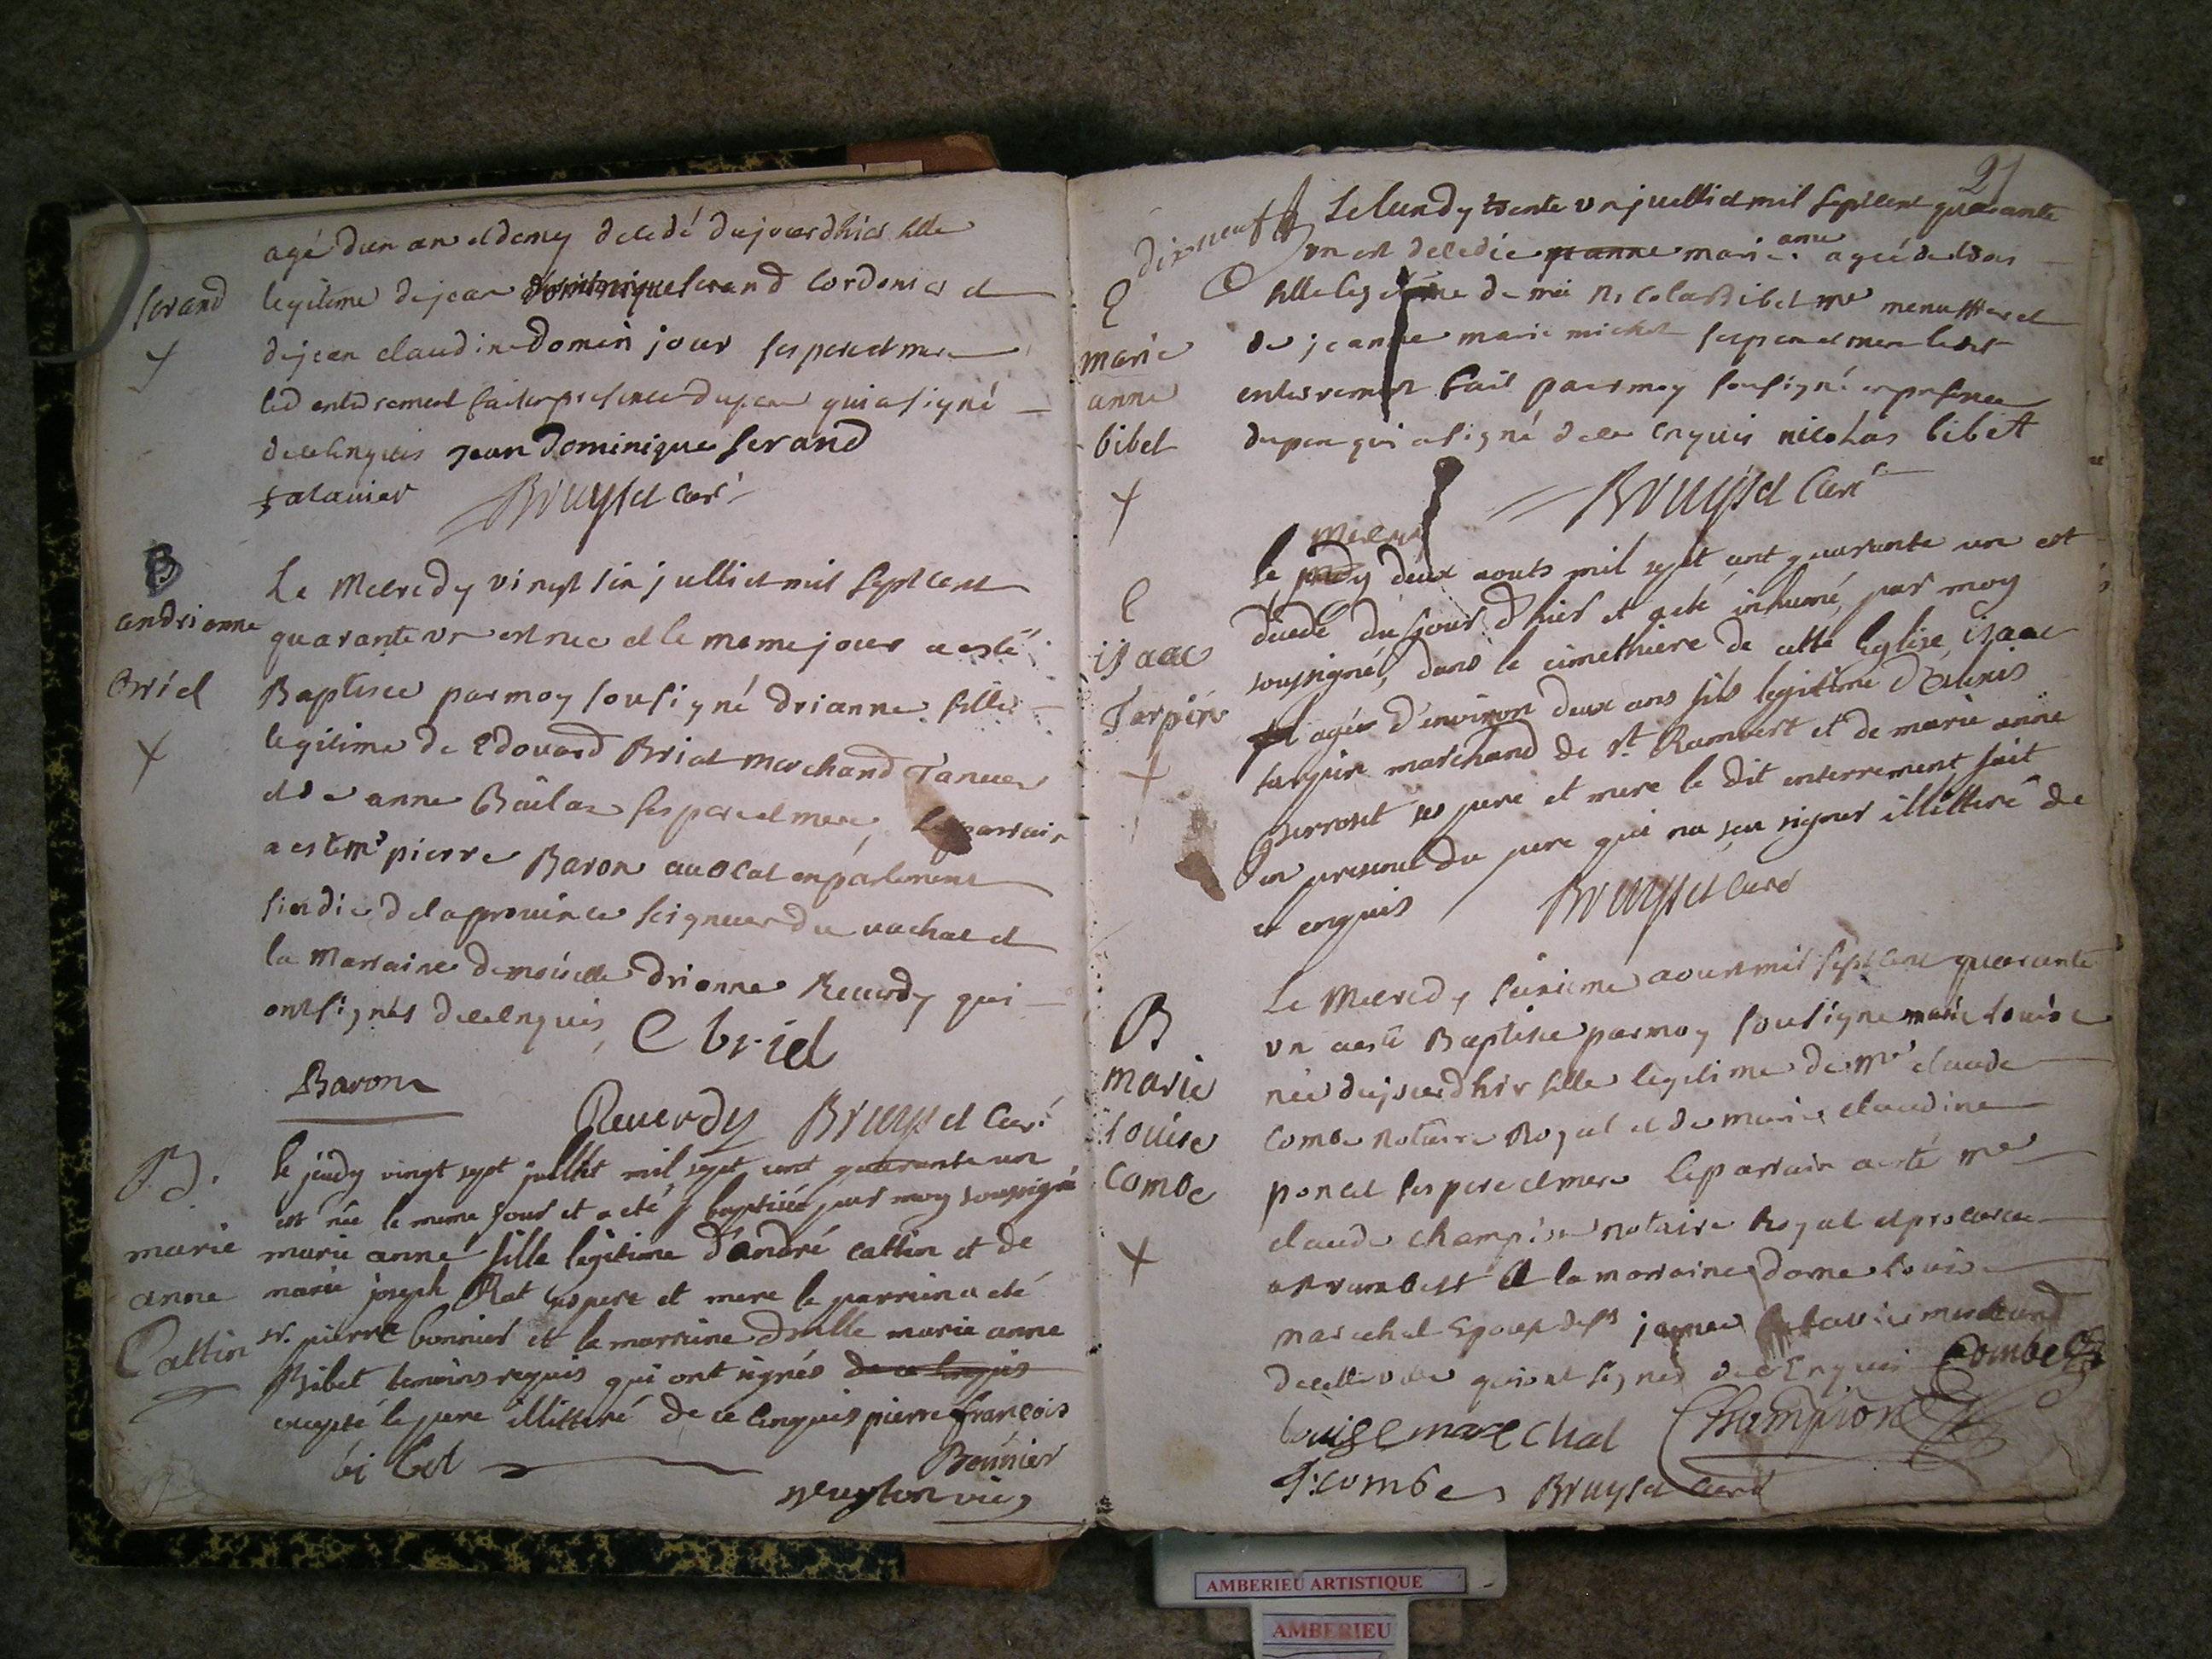 agé dun an et demy decedé dujourdhier fille
serand
legitime de jean dominique serand cordonier et
de jean claudine Domin jour ses pere et mere
led enterement fait en presence du pere qui a signé
de ce enquis jean Dominique serand
Bruyset curé
B
Le Mecredy vingt six julliet mil sept cent
andrianne
quarante un est nee et le meme jour a esté
Briel
Baptisee par moy sousigné drianne fille
legitime de Edouard Briel marchand Taneur
et de anne ses pere et mere, le parrain
a esté mr pierre Baron auocat en parlement
sindic de la prouince seigneur du uachat et
la Marraine demoiselle drianne Reuerdy qui
ont signés de ce enquis E briel
Baron
Reuerdy Bruyset curé
B.
le jeudy vingt sept juillet mil sept cent quarante un
est née le meme jour et a eté baptisée par moy soussigné
marie
marie anne fille legitime d'andré cattin et de
anne
marie joseph Rat ses pere et mere le parrain a eté
Cattin
sr. pierre bonnier et la marraine dmlle marie anne
Bibet temoins requis qui ont signés de ce enquis
excepté le pere illitteré de ce enquis pierre françois
bibet
Bonnier
21
dixneuf
Le lundy trente un julliet mil sept cent quarante
un est decedée jeanne marie anne agée de
E
fille legitime de Nicolas Bibet me menusier et
marie
de jeanne marie michel ses pere et mere ledit
anne
enterrement fait par moy sousigné en presence
bibet
du pere qui a signé de ce enquis nicolas bibet
Bruyset curé
mecredy
le jeudy deux aouts mil sept cent quarante un est
E
decedé du jour d'hier et a eté inhumé par moy
isaac
soussigné, dans le cimethiere de cette Eglise, isaac
Tarpin
agée d'environ deux ans fils legitime
tarpin marchand de st Rambert et de marie anne
perroset ses pere et mere le dit enterrement fait
en presence du pere qui na sçu signer illitteré de
ce enquis Bruyset curé
Le Mecredy seizieme aoust mil sept cent quarante
B
un a esté Baptisee par moy sousigné marie louise
marie
née dujourdhier fille legitime de me claude
louise
combe notaire Royal et de marie claudine
combe
poncet ses pere et mere le parrain a esté me
claude champion notaire Royal et procureur
a st rambert et la marraine dame louise
marechal Epouse de sr marchand
de cette ville qui ont signes de ce Enquis Combe
louise marechal Champion
combe Bruyset curé
AMBERIEU ARTISTIQUE
AMBERIEU